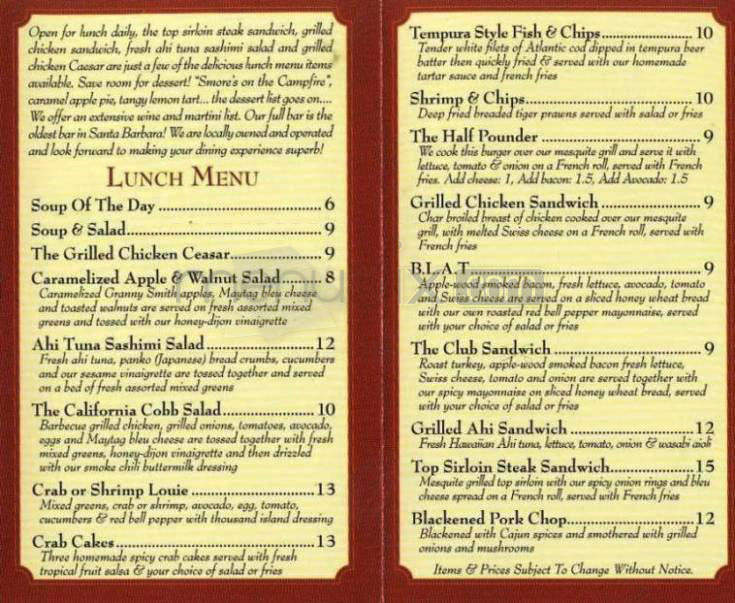 Open for lunch daily, the top sirloin steak sandwich, grilled
chicken sandwich, fresh ahi tuna sashimi salad and grilled
chicken Caesar are just a few of the delicious lunch menu items
available. Save room for dessert! "Smore's on the Campfire",
caramel apple pie, tangy lemon tart... the dessert list goes on....
We offer an extensive wine and martini list. Our full bar is the
oldest bar in Santa Barbara! We are locally owned and operated
and look forward to making your dining experience superb!
LUNCH MENU
Soup Of The Day ........ 6
Soup & Salad........ 9
The Grilled Chicken Ceasar........ 9
Caramelized Apple & Walnut Salad........ 8
Caramelized Granny Smith apples, Maytag bleu cheese
and toasted walnuts are served on fresh assorted mixed
greens and tossed with our honey-dijon vinaigrette
Ahi Tuna Sashimi Salad........ 12
Fresh ahi tuna, panko (Japanese) bread crumbs, cucumbers
and our sesame vinaigrette are tossed together and served
on a bed of fresh assorted mixed greens
The California Cobb Salad........ 10
Barbecue grilled chicken, grilled onions, tomatoes, avocado,
eggs and Maytag bleu cheese are tossed together with fresh
mixed greens, honey-dijon vinaigrette and then drizzled
with our smoke chili buttermilk dressing
Crab or Shrimp Louie ........ 13
Mixed greens, crab or shrimp, avocado, egg, tomato,
cucumbers & red bell pepper with thousand island dressing
Crab Cakes........ 13
Three homemade spicy crab cakes served with fresh
tropical fruit salsa & your choice of salad or fries
Tempura Style Fish & Chips........ 10
Tender white filets of Atlantic cod dipped in tempura beer
batter then quickly fried & served with our homemade
tartar sauce and french fries
Shrimp & Chips........ 10
Deep fried breaded tiger prawns served with salad or fries
The Half Pounder ........ 9
We cook this burger over our mesquite grill and serve it with
lettuce, tomato & onion on a French roll, served with French
fries. Add cheese: 1, Add bacon: 1.5, Add Avocado: 1.5
Grilled Chicken Sandwich ........ 9
Char broiled breast of chicken cooked over our mesquite
grill, with melted Swiss cheese on a French roll, served with
French fries
B.L.A.T........ 9
Apple-wood smoked bacon, fresh lettuce, avocado, tomato
and Swiss cheese are served on a sliced honey wheat bread
with our own roasted red bell pepper mayonnaise, served
with your choice of salad or fries
The Club Sandwich ........ 9
Roast turkey, apple-wood smoked bacon fresh lettuce,
Swiss cheese, tomato and onion are served together with
our spicy mayonnaise on sliced honey wheat bread, served
with your choice of salad or fries
Grilled Ahi Sandwich ........ 12
Fresh Hawaiian Ahi tuna, lettuce, tomato, onion & wasabi aioli
Top Sirloin Steak Sandwich........ 15
Mesquite grilled top sirloin with our spicy onion rings and bleu
cheese spread on a French roll, served with French fries
Blackened Pork Chop........ 12
Blackened with Cajun spices and smothered with grilled
onions and mushrooms
Items & Prices Subject To Change Without Notice.